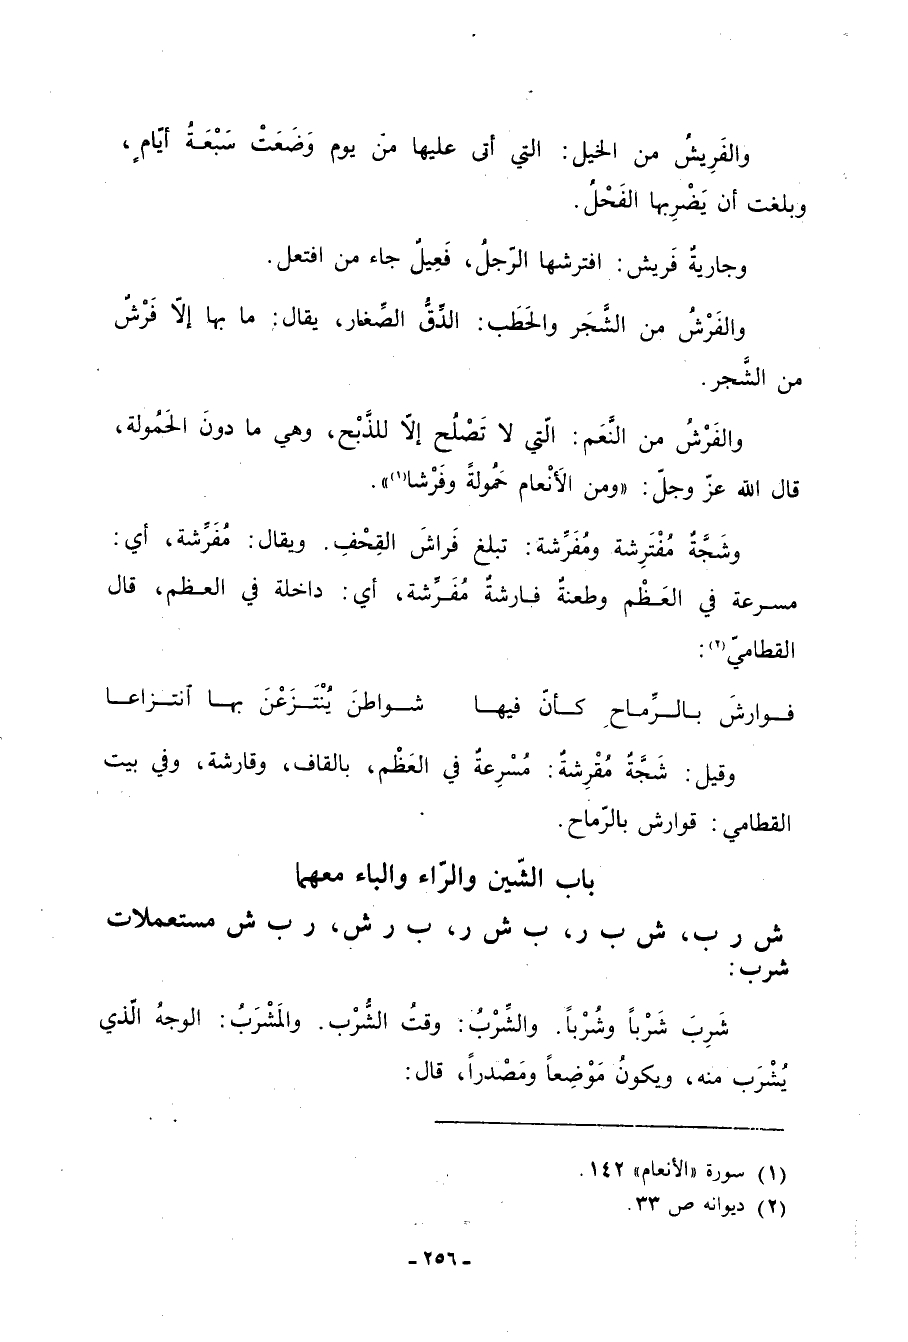 والفَرِيشُ من الخيل: التي أتى عليها منّ يوم وَضَعَتْ سَبْعَةُ أيّامٍ،
وبلغت أن يَضْرِبها الفَحْلُ.
وجاريةٌ فَريش: افترشها الرّجلُ، فَعِيلٌ جاء من افتعل.
والفَرْشُ من الشَّجَر والحَطَب: الدِّقُّ الصِّغار، يقال: ما بها إلاّ فَرْشٌ
من الشَّجر.
والفَرْشُ من النَّعَم: الّتي لا تَصْلُح إلاّ للذَّبْح، وهي ما دونَ الحَمُولة،
قال الله عزّ وجلّ: «ومن الأَنْعام حَمُولةً وفَرْشا(١)».
وشَجَّةٌ مُفْتَرِشة ومُفَرِّشة: تبلغ فَراشَ القِحْفِ. ويقال: مُفَرِّشة، أي:
مسرعة في العَظْم وطعنةٌ فارشةٌ مُفَرِّشة، أي: داخلة في العظم، قال
القطاميّ(٢):
فوارشَ بالرِّماحِ كأنّ فيها شواطنَ يُنْتَزَعْنَ بها آنتزاعا
وقيل: شَجَّةٌ مُقْرِشةٌ: مُسْرِعةٌ في العَظْم، بالقاف، وقارشة، وفي بيت
القطامي: قوارش بالرّماح.
باب الشّين والرّاء والباء معهما
ش ر ب، ش ب ر، ب ش ر، ب ر ش، ر ب ش مستعملات
شرب:
شَرِبَ شَرْباً وشُرْباً. والشِّرْبُ: وقتُ الشُّرْب. والمَشْرَبُ: الوجهُ الّذي
يُشْرَب منه، ويكونُ مَوْضِعاً ومَصْدراً، قال:
(١) سورة «الأنعام» ١٤٢.
(٢) ديوانه ص ٣٣.
- ٢٥٦ -